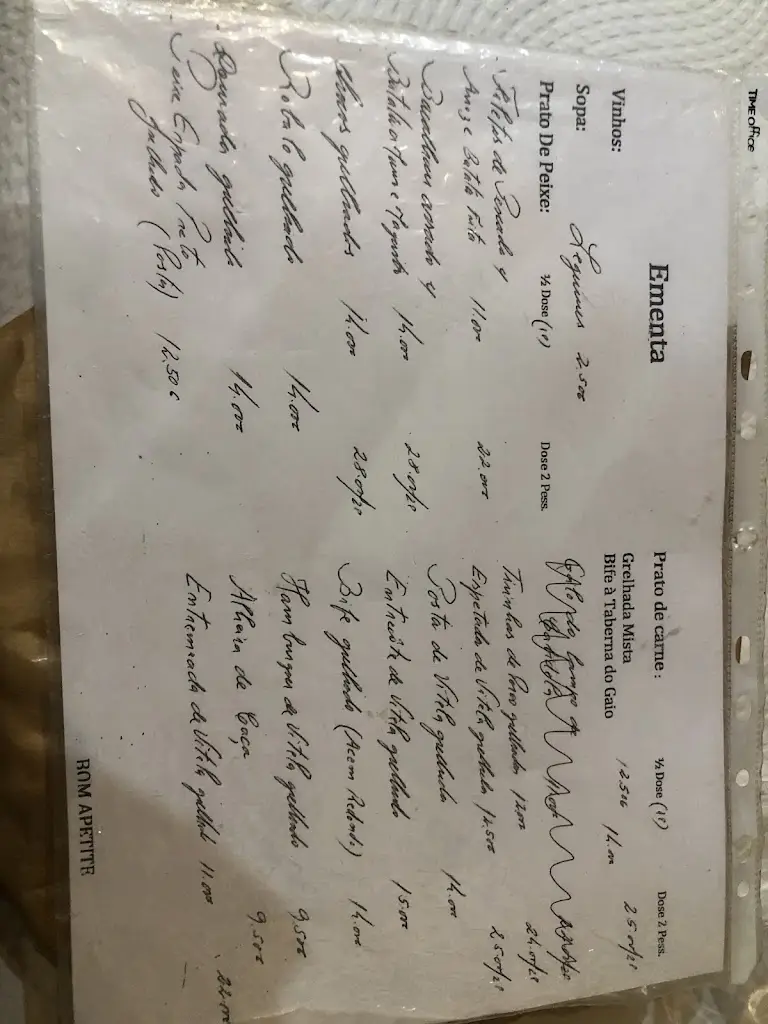 TIMEoffice
Ementa
Vinhos:
Sopa: Legumes 2.50€
Prato De Peixe: ½ Dose (1P) Dose 2 Pess.
Filetes de Pescada c/
Arroz e Batata Frita 11.00 22.00
Bacalhau assado c/
Batata 14.00 28.00/2P
grelhados 14.00 28.00/2P
Robalo grelhado 14.00
Dourada grelhada 14.00
Peixe Espada Preto
Grelhado (Posta) 12.50€
Prato de carne: ½ Dose (1P) Dose 2 Pess.
Grelhada Mista 12.50€ 25.00/2P
Bife à Taberna do Gaio 14.00
de Porco grelhada 12.00 24.00/2P
Espetada de Vitela grelhada 12.50€ 25.00/2P
Posta de Vitela grelhada 14.00
Entrecôte de Vitela grelhado 15.00
Bife grelhado (Acem Redondo) 14.00
Hamburguer de Vitela grelhado 9.50€
Alheira de Caça 9.50€
Entremeada de Vitela grelhada 11.00 22.00
BOM APETITE